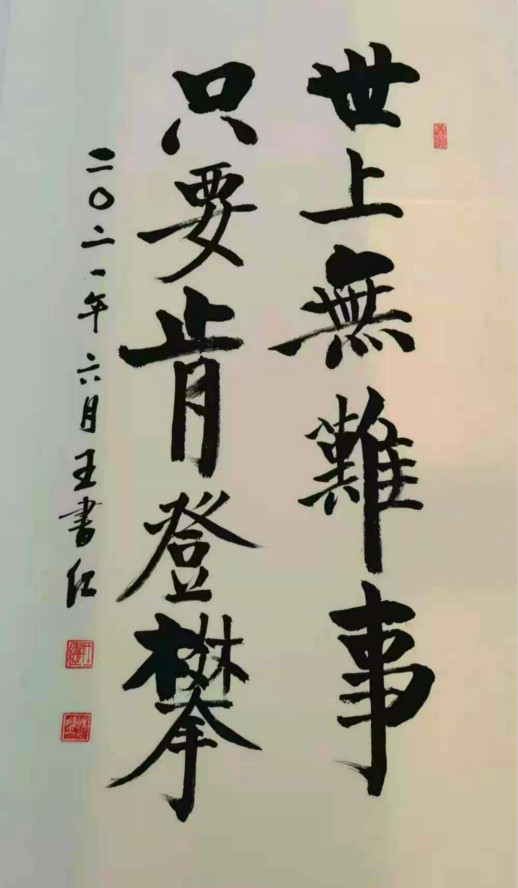 世上無難事
只要肯登攀
二〇二一年六月王書紅